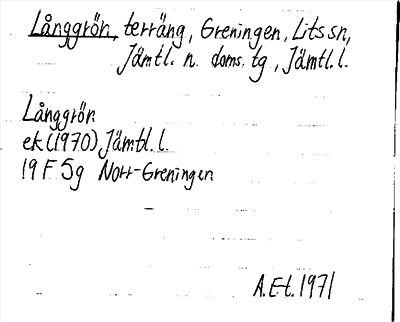 Långgrön, terräng, Greningen, Lits sn,
Jämtl. n. doms. tg, Jämtl. l.
Långgrön
ek (1970) Jämtl. l.
19 F 5g Norr-Greningen
A. E-t. 1971